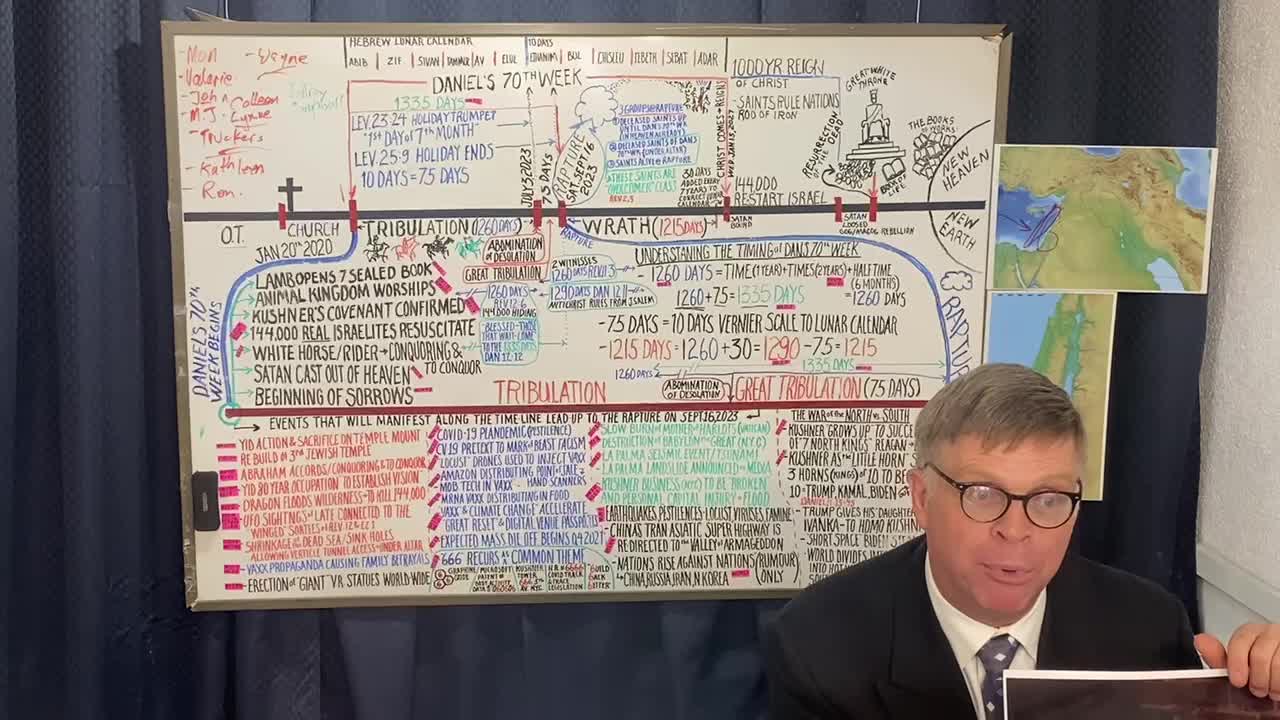 - Mom - Wayne
- Valarie
- John Colleen
- M.J. Lynne
- Truckers
- Kathleen
- Ron.
HEBREW LUNAR CALENDAR
10 DAYS
ABIB | ZIF | SIVAN | TAMMUZ | AV | ELUL | ETHANIM | BUL | CHISLEU | TEBETH | SEBAT | ADAR
DANIEL'S 70TH WEEK
1335 DAYS
LEV. 23:24 HOLIDAY TRUMPET
"1ST DAY OF 7TH MONTH"
LEV. 25:9 HOLIDAY ENDS
10 DAYS = 75 DAYS
JULY 3 2023
75 DAYS
RAPTURE
SAT. SEPT 16
2023
3 GROUPS @ RAPTURE
DECEASED SAINTS UP
UNTIL DAN'S 70TH WK
(IN HEAVEN ALREADY)
DECEASED SAINTS OF DAN'S
70TH WK (UNDER ALTAR)
SAINTS ALIVE @ RAPTURE
THESE SAINTS ARE
"OVERCOMER" CLASS
REV 2,3
30 DAYS
ADDED EVERY
7 YEARS TO
CORRECT LUNAR
CALENDAR
CHRIST COMES & REIGNS
WED JAN 13 2027
1000 YR REIGN
OF CHRIST
- SAINTS RULE NATIONS
ROD OF IRON
144,000
RESTART ISRAEL
RESURRECTION
OF DEAD
GREAT WHITE
THRONE
THE BOOKS
OF WORKS
BOOK OF
LIFE
NEW
HEAVEN
NEW
EARTH
O.T.
CHURCH
JAN 20TH 2020
TRIBULATION (1260 DAYS)
RAPTURE
WRATH (1215 DAYS)
SATAN
BOUND
SATAN
LOOSED
GOG/MAGOG REBELLION
ABOMINATION
OF DESOLATION
GREAT TRIBULATION
2 WITNESSES
1260 DAYS REV 11:3
1290 DAYS DAN. 12:11
ANTICHRIST RULES FROM J'SALEM
1260 DAYS
REV. 12:6
144,000 HIDING
"BLESSED - THOSE
THAT WAIT - COME
TO THE 1335 DAYS
DAN 12:12
DANIEL'S 70TH
WEEK BEGINS
LAMB OPENS 7 SEALED BOOK
ANIMAL KINGDOM WORSHIPS
KUSHNER'S COVENANT CONFIRMED
144,000 REAL ISRAELITES RESUSCITATE
WHITE HORSE/RIDER → CONQUORING &
TO CONQUOR
SATAN CAST OUT OF HEAVEN
BEGINNING OF SORROWS
UNDERSTANING THE TIMING OF DAN'S 70TH WEEK
- 1260 DAYS = TIME (1 YEAR) + TIMES (2 YEARS) + HALF TIME
(6 MONTHS)
= 1260 DAYS
1260 + 75 = 1335 DAYS
- 75 DAYS = 10 DAYS VERNIER SCALE TO LUNAR CALENDAR
- 1215 DAYS = 1260 + 30 = 1290 - 75 = 1215
1335 DAYS
1260 DAYS
RAPTURE
TRIBULATION
ABOMINATION
OF DESOLATION
GREAT TRIBULATION (75 DAYS)
EVENTS THAT WILL MANIFEST ALONG THE TIMELINE LEAD UP TO THE RAPTURE ON SEPT 16, 2023
YID ACTION & SACRIFICE ON TEMPLE MOUNT
RE BUILD OF 3RD JEWISH TEMPLE
ABRAHAM ACCORDS/CONQUORING & TO CONQUOR
"YID 80 YEAR OCCUPATION TO ESTABLISH VISION"
DRAGON FLOODS WILDERNESS → TO KILL 144,000
UFO SIGHTINGS OF LATE CONNECTED TO THE
SHRINKAGE OF THE DEAD SEA / SINK HOLES
ALLOWING VERTICLE TUNNEL ACCESS → UNDER ALTAR
VAXX PROPAGANDA CAUSING FAMILY BETRAYALS
ERECTION OF "GIANT" VR STATUES WORLD-WIDE
COVID-19 PLANDEMIC (PESTILENCE)
CV19 PRETEXT TO MARK OF BEAST FACISM
"LOCUST" DRONES USED TO INJECT VAXX
AMAZON DISTRIBUTING POINT
MOB TECH IN VAXX - HAND SCANNERS
MRNA VAXX DISTRIBUTING IN FOOD
VAXX & CLIMATE CHANGE' ACCELERATE
GREAT RESET & DIGITAL VENUE PASSPORTS
EXPECTED MASS DIE OFF BEGINS Q4 2021
666 RECURS AS COMMON THEME
SLOW BURN OF MOTHER OF HARLOTS (VATICAN)
DESTRUCTION OF BABYLON THE GREAT (N.Y.C)
LA PALMA SEISMIC EVENT/TSUNAMI
LA PALMA LANDSLIDE ANNOUNCED BY MEDIA
KUSHNER BUSINESS (NYC) TO BE 'BROKEN'
AND PERSONAL CAPITAL INJURY - FLOOD
EARTHQUAKES PESTILENCES LOCUST VIRUSES FAMINE
CHINA'S TRAN ASIATIC SUPER HIGHWAY IS
REDIRECTED TO THE VALLEY OF ARMAGEDDON
- NATIONS RISE AGAINST NATIONS (RUMOUR
ONLY)
CHINA, RUSSIA, IRAN, N. KOREA
THE WAR OF THE NORTH VS. SOUTH
KUSHNER GROWS UP TO SUCCE
OF 7 NORTH KINGS' REAGAN →
KUSHNER AS THE "LITTLE HORN"
3 HORNS (KINGS) OF 10 TO BE
10 - TRUMP, KAMAL, BIDEN
- TRUMP GIVES HIS DAUGHTER
IVANKA - TO HOMO KUSHN
- SHORT SPACE BIDEN STE
WORLD DIVIDES IN